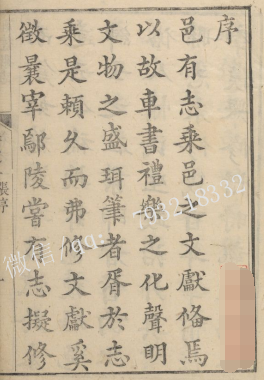 序
邑有志乘邑之文獻俻焉
以故車書禮樂之化聲明
文物之盛珥筆者胥於志
乘是頼久而弗修文獻奚
徴曩宰鄢陵嘗有志擬修
張序
微信/qq: 793218332